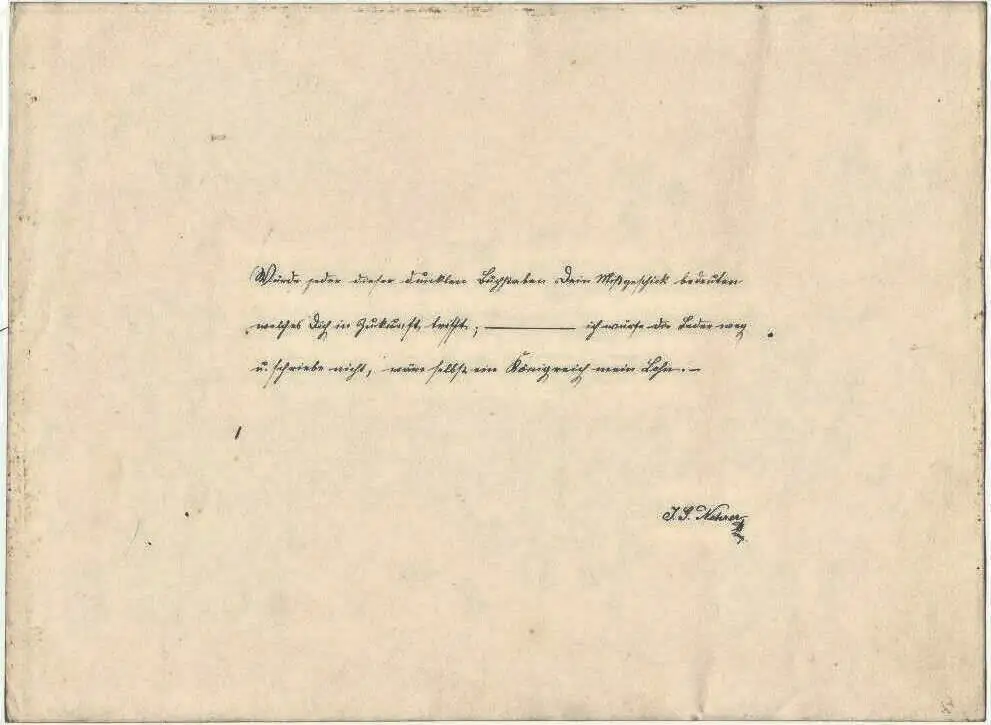 Würde jeder dieser dunklen Buchstaben Dein Mißgeschick bedeuten
welches Dich in Zukunft trifft; ——— ich würfe die Feder weg
u. schriebe nicht, wäre selbst ein Königreich mein Lohn. —
J. S.